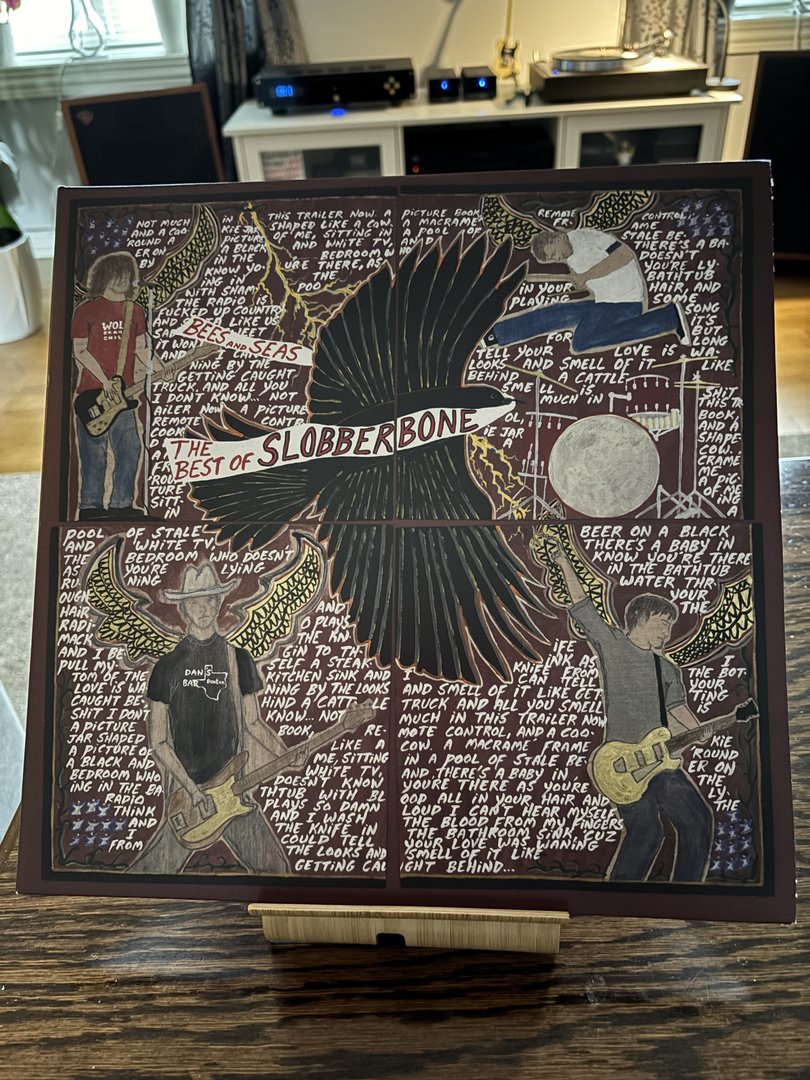 NOT MUCH IN THIS TRAILER NOW. A
AND A COO- KIE JAR SHAPED LIKE A COW.
'ROUND A PICTURE OF ME, SITTING IN
ER ON A BLACK AND WHITE TV,
BY THE BEDROOM W
KNOW YO- URE THERE, AS
ING IN THE
WITH SHAM POO
THE RADIO IS
FUCKED UP COUNTRY
AND SHE LIKE US
BEES AND SEAS
GETTING CAUGHT
TRUCK. AND ALL YOU
I DON'T KNOW... NOT
AILER NOW A PICTURE
REMOTE CONTR
COOK
THE
BEST OF SLOBBERBONE
WOLF
CHILD
'ROU
TURE
SITT-
IN
PICTURE BOOK, REMOTE CONTROL,
A MACRAME FR- AME
A POOL OF STALE BE-
THERE'S A BA-
DOESN'T
YOU'RE LY-
BATHTUB
IN YOUR HAIR, AND
PLAYING SOME
SONG
IT'S
BUT
FOR LONG
TELL YOUR LOVE IS WA-
LOOKS AND SMELL OF IT LIKE
BEHIND A CATTLE
SMELL SHIT
MUCH IN THIS TR
OL, BOOK,
IE JAR AND A
A SHAPE
COW.
CRAME
A PIC-
OF ME
INE
A
POOL OF STALE
AND WHITE TV,
THE BEDROOM WHO DOESN'T
AS YOU'RE LYING
RU- NING
OUGH
HAIR AND
RADI- O PLAYS
MACK THE KN
AND I BE- GIN TO TH-
PULL MY- SELF A STEAK
TOM OF THE KITCHEN SINK AND
LOVE IS WA- NING BY THE LOOKS
CAUGHT BE- HIND A CATT- LE
SHIT I DON'T KNOW... NOT
A PICTURE BOOK, RE-
JAR SHAPED LIKE A
A PICTURE OF ME, SITTING
A BLACK AND WHITE TV,
BEDROOM WHO DOESN'T KNOW
ING IN THE BA- THTUB WITH BL
RADIO PLAYS SO DAMN
THINK AND I WASH
AND THE KNIFE IN
I COULD TELL
FROM THE LOOKS AND
GETTING CAU
DAN'S
BAR DENTON
BEER ON A BLACK
THERE'S A BABY IN
KNOW YOU'RE THERE
IN THE BATHTUB
WATER THR-
YOUR
THE
IFE I
INK AS THE BOT-
KNIFE FROM YOUR
CAN TELL TING
AND SMELL OF IT LIKE GET IS
TRUCK AND ALL YOU SMELL
MUCH IN THIS TRAILER NOW
MOTE CONTROL, AND A COO- KIE
COW. A MACRAME FRAME 'ROUND
IN A POOL OF STALE BE- ER ON
AND THERE'S A BABY IN THE
YOU'RE THERE AS YOU'RE LY-
OOD ALL IN YOUR HAIR AND THE
LOUD I CAN'T HEAR MYSELF
THE BLOOD FROM MY FINGERS
THE BATHROOM SINK, CUZ
YOUR LOVE WAS WANING
SMELL OF IT LIKE
GHT BEHIND...